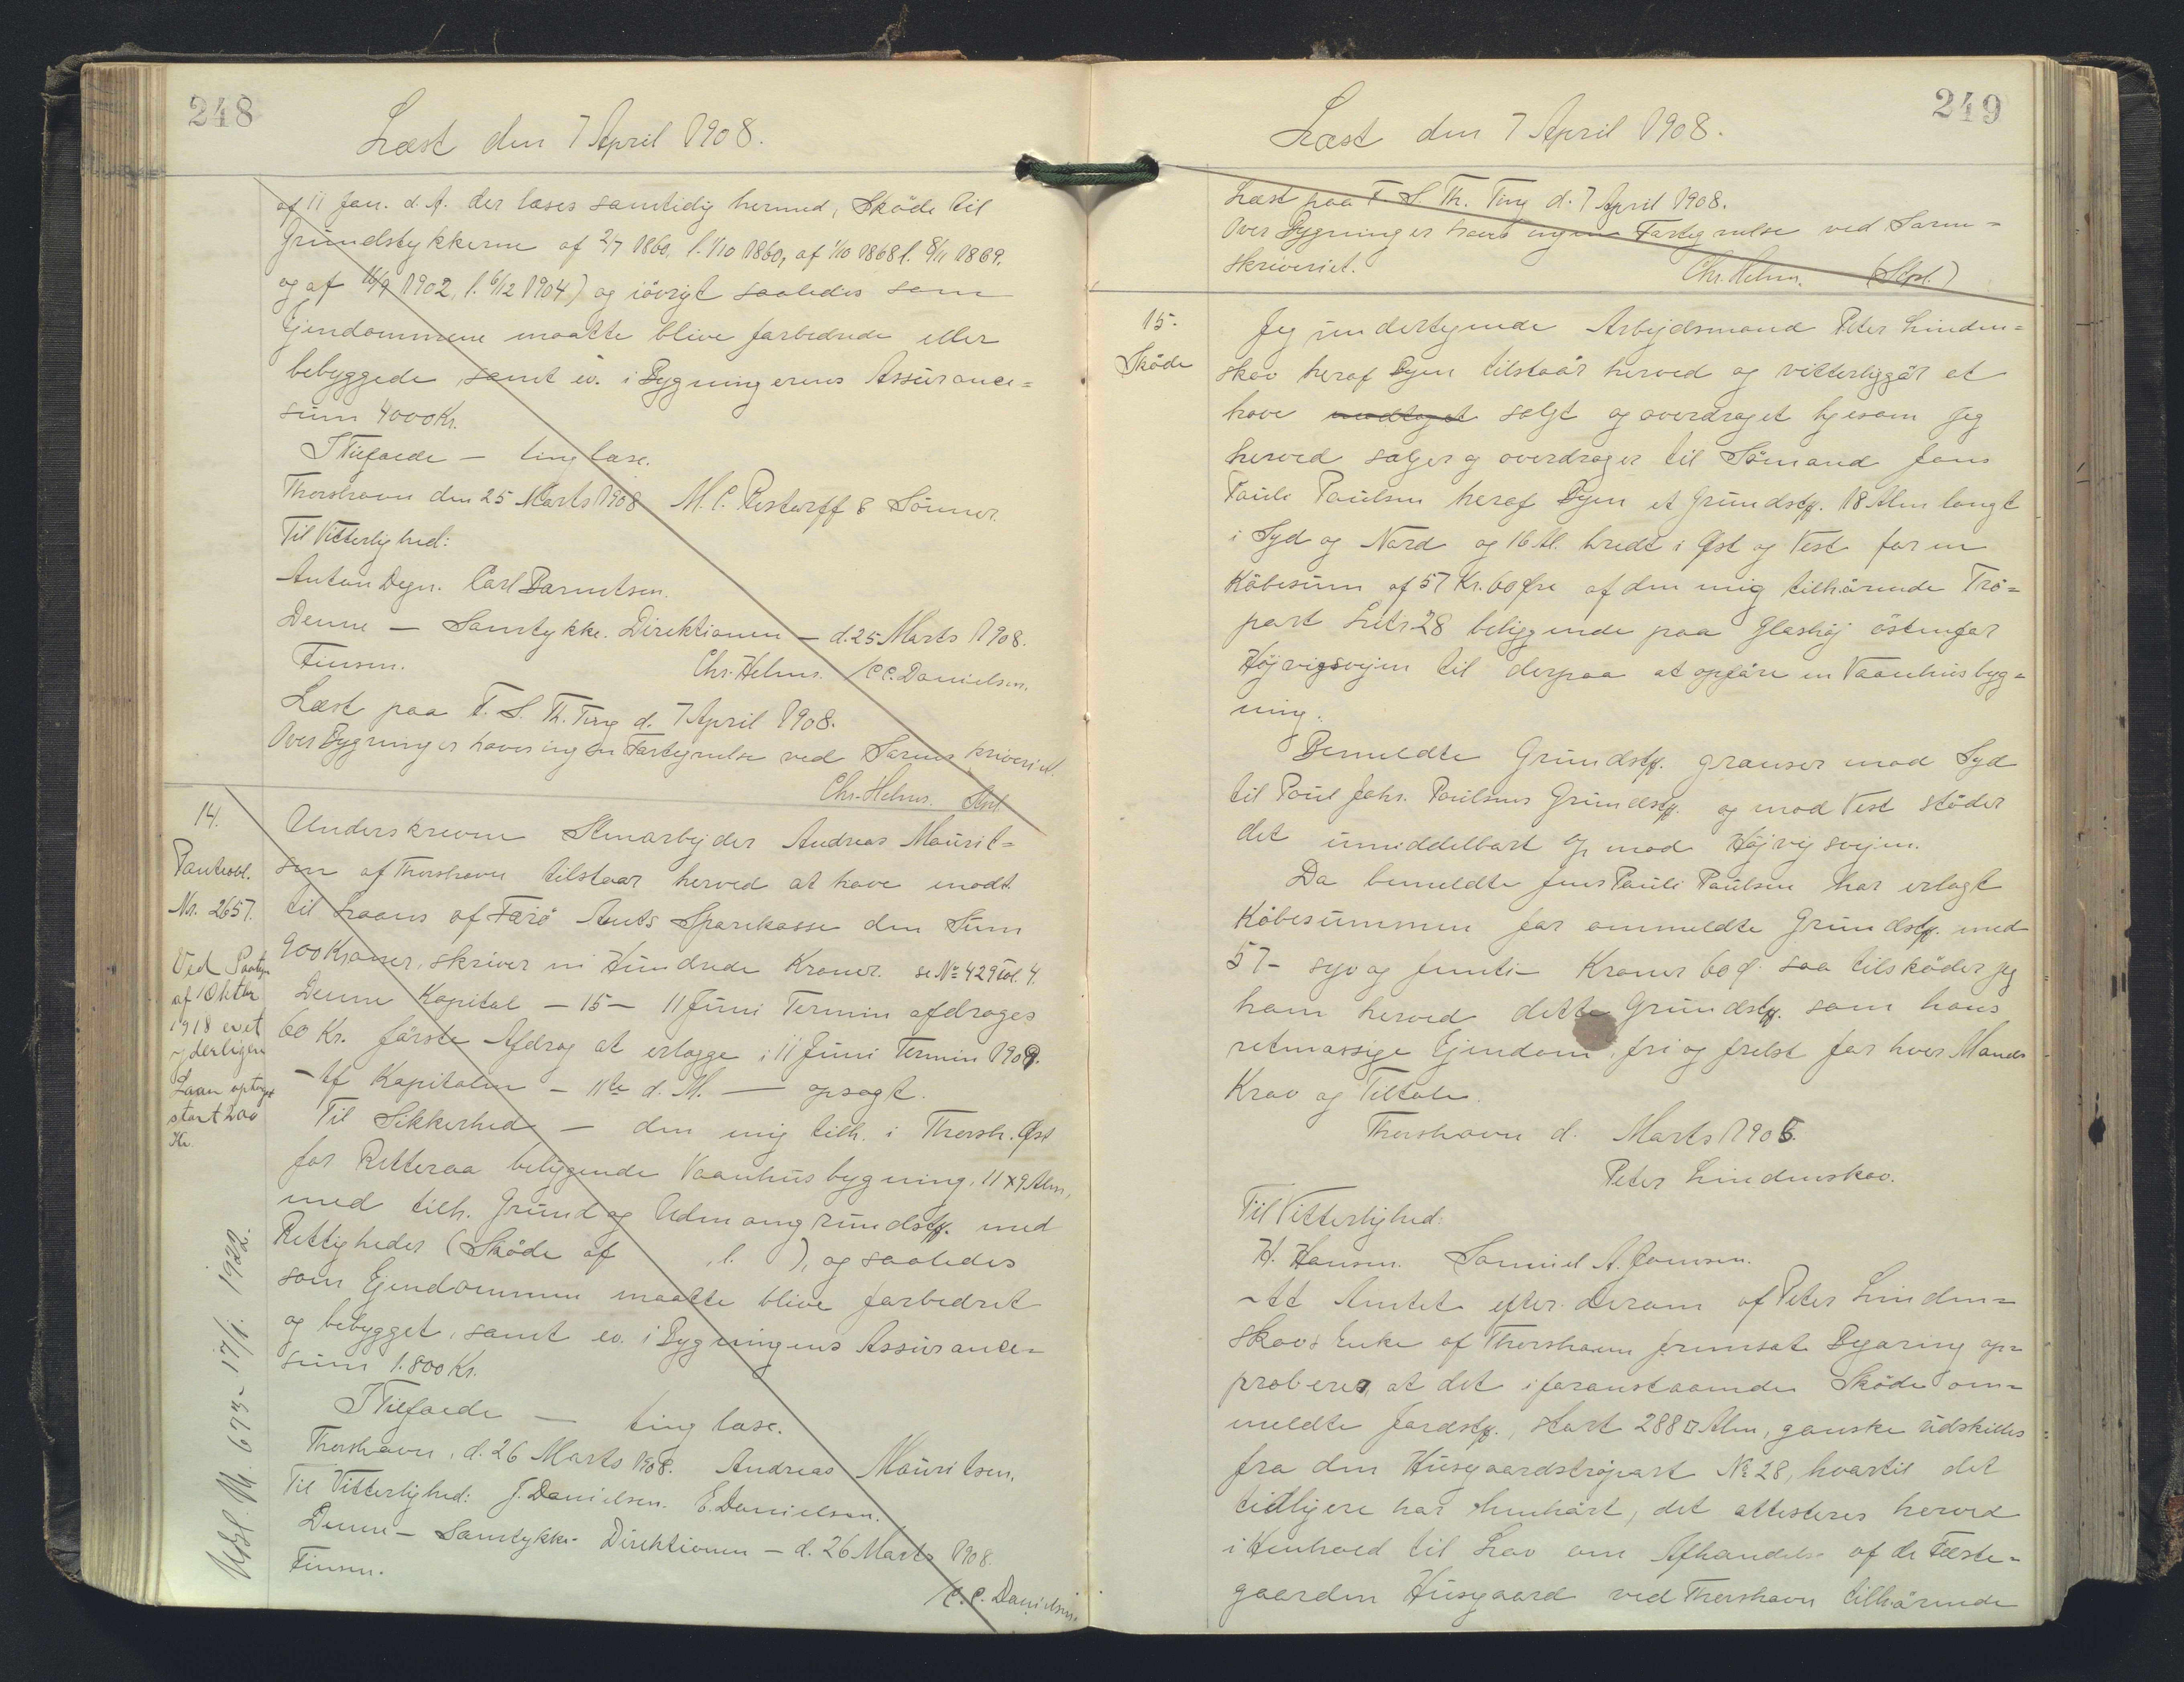 248
Læst den 7 April 1908.
af 11 Jan. d. A. der læses samtidig hermed, Sköde til
Grundstykkerne af 2/7 1860, l. 1/10 1860, af 1/10 1868 l. 8/11 1869.
og af 16/9 1902, l. 6/12 1904) og iövrigt saaledes som
Ejendommene maatte blive forbedrede eller
bebyggede, samt ev. i Bygningernes Assurance=
sum 4000 Kr.
I Tilfælde — ting læse.
Thorshavn den 25 Marts 1908 M. C. Restorff & Sönner.
Til Vitterlighed:
Anton Degn. Carl Berentsen.
Denne — Samtykke. Direktionen — d. 25 Marts 1908.
Finsen. Chr. Helms. / C C. Danielsen.
Læst paa F. S. Th. Ting d. 7 April 1908.
Over Bygninger haves ingen Fortegnelse ved Sorenskriveriet.
Chr. Helms. Stpl
14.
Panteobl.
Nr. 2657.
Ved Paategn
af 1 Oktbr
1918 er et
yderligere
Laan optaget
stort 200
Kr.
Udsl. Nr. 673 - 17/1. 1922.
Underskrevne Stenarbejder Andreas Maurit=
sen af Thorshavn tilstaar herved at have modt.
til Laans af Færö Amts Sparekasse den Sum
900 Kroner, skriver ni Hundrede Kroner. se No 429 Fol. 4.
Denne Kapital — 15 — 11 Juni Termin afdrages
60 Kr. förste Afdrag at erlægge i 11 Juni Termin 1909.
— Af Kapitalen — 11te d. M. — opsagt.
Til Sikkerhed — den mig tilh. i Thorsh. Øst
for Retteraa beliggende Vaanhusbygning, 11 x 9 Alen,
med tilh. Grund og Udmarksgrundstk. med
Rettigheder (Sköde af , l. ), og saaledes
som Ejendommen maatte blive forbedret
og bebygget, samt ev. i Bygningens Assurance=
sum 1.800 Kr.
I Tilfælde — ting læse.
Thorshavn, d. 26 Marts 1908. Andreas Mauritsen.
Til Vitterlighed: J. Danielsen. E. Danielsen.
Denne — Samtykke — Direktionen — d. 26 Marts 1908.
Finsen. / C. C. Danielsen.
249
Læst den 7 April 1908.
Læst paa F. S. Th. Ting d. 7 April 1908.
Over Bygninger haves ingen Fortegnelse ved Soren=
skriveriet. Chr. Helms. (Stpl.)
15.
Sköde
Jeg undertegnede Arbejdsmand Peter Linden=
skov heraf Byen tilstaar herved og vitterliggör at
have modtaget solgt og overdraget ligesom jeg
herved sælger og overdrager til Sömand Jens
Pauli Paulsen heraf Byen et Grundstk. 18 Alen langt
i Syd og Nord og 16 Al. bredt i Øst og Vest for en
Köbesum af 57 Kr. 60 Øre af den mig tilhörende Trö=
part Litr 28 beliggende paa Glashöj östenfor
Höjvigsvejen til derpaa at opföre en Vaanhusbyg=
ning.
Bemeldte Grundstk. grænser mod Syd
til Poul Johs. Poulsens Grundstk. og mod Vest stöder
det umiddelbart op mod Höjvigsvejen.
Da bemeldte Jens Pauli Paulsen har erlagt
Köbesummen for ommeldte Grundstk. med
57 - syv og femti - Kroner 60 Ø. saa tilsköder jeg
ham herved dette Grundstk. som hans
retmæssige Ejendom, fri og frelst for hver Mands
Krav og Tiltale.
Thorshavn d. Marts 1905.
Peter Lindenskov.
Til Vitterlighed:
H. Hansen. Samuel A. Joensen.
— At Amtet efter derom af Peter Linden=
skovs Enke af Thorshavn fremsat Begæring ap=
proberer, at det i foranstaaende Sköde om=
meldte Jordstk., stort 288 □ Alen, ganske udskilles
fra den Husgaardströpart No 28, hvortil det
tidligere har henhört, det attesteres herved
i Henhold til Lov om Afhændelse af de Fæste=
gaarden Husgaard ved Thorshavn tilhörende